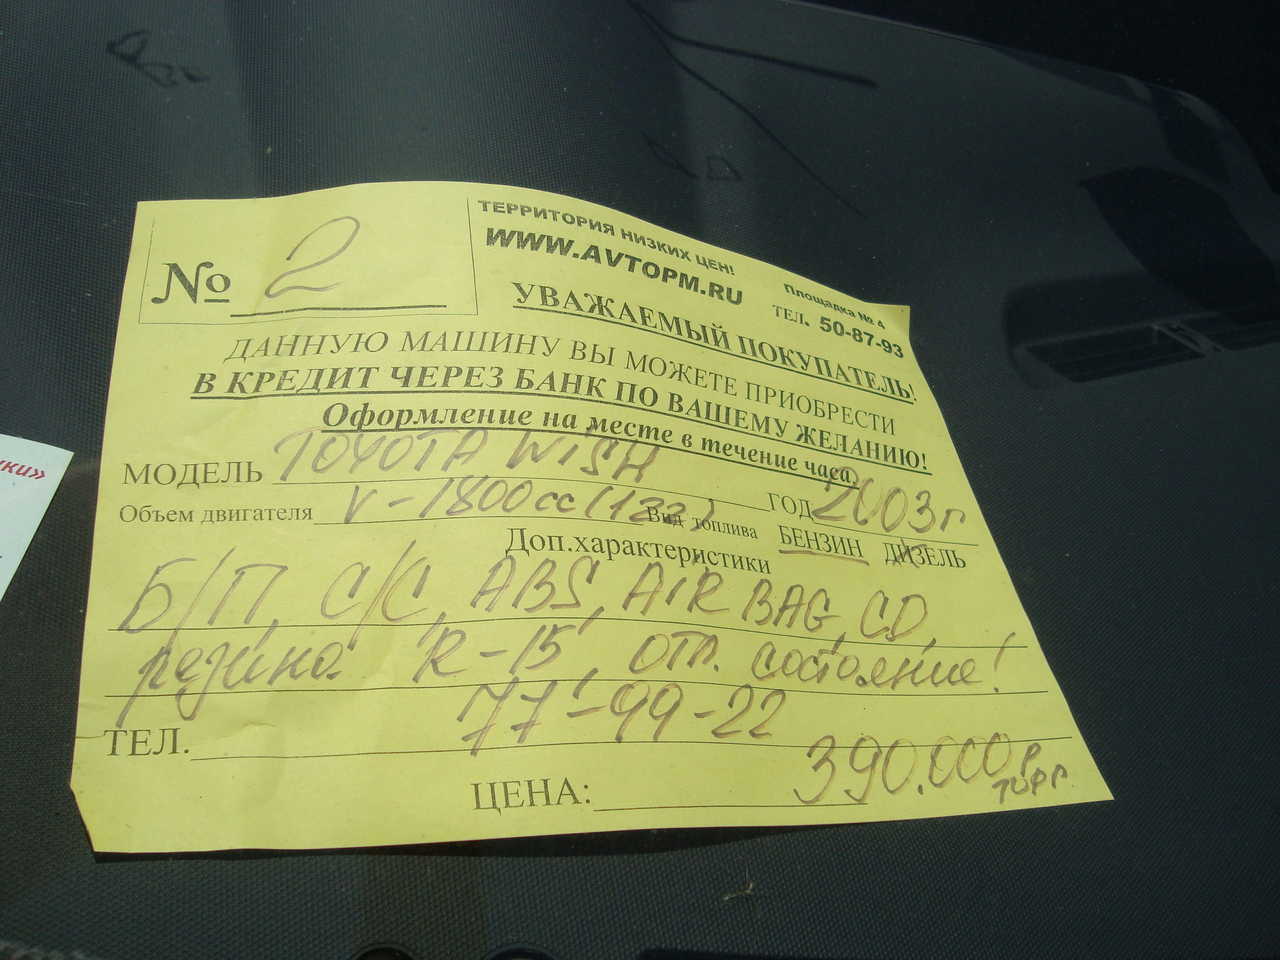 № 2
ТЕРРИТОРИЯ НИЗКИХ ЦЕН!
WWW.AVTOPM.RU
Площадка № 4
ТЕЛ. 50-87-93
УВАЖАЕМЫЙ ПОКУПАТЕЛЬ!
ДАННУЮ МАШИНУ ВЫ МОЖЕТЕ ПРИОБРЕСТИ
В КРЕДИТ ЧЕРЕЗ БАНК ПО ВАШЕМУ ЖЕЛАНИЮ!
Оформление на месте в течение часа.
МОДЕЛЬ TOYOTA WISH ГОД 2003г
Объем двигателя V-1800cc (132) Вид топлива БЕНЗИН ДИЗЕЛЬ
Доп.характеристики
Б/П, С/С, ABS, AIR BAG, CD,
резина R-15, отл. состояние!
ТЕЛ. 77-99-22
ЦЕНА: 390.000р
торг
ки»